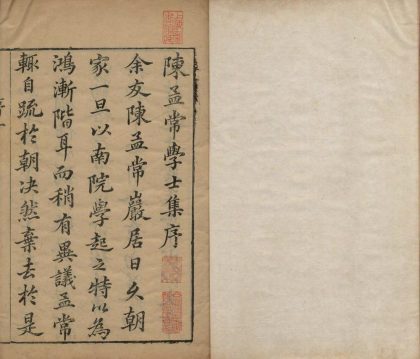 陳孟常學士集序
余友陳孟常巖居日久朝
家一旦以南院學起之特以為
鴻漸階耳而稍有異議孟常
輒自疏於朝决然棄去於是
序一